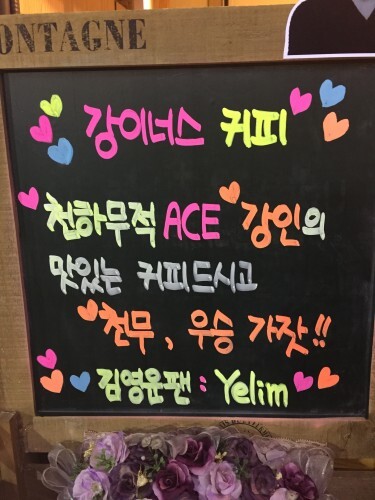 ONTAGNE
강이너스 커피
천하무적 ACE 강인의
맛있는 커피드시고
천무, 우승 가잣!!
김영운팬 : Yelim